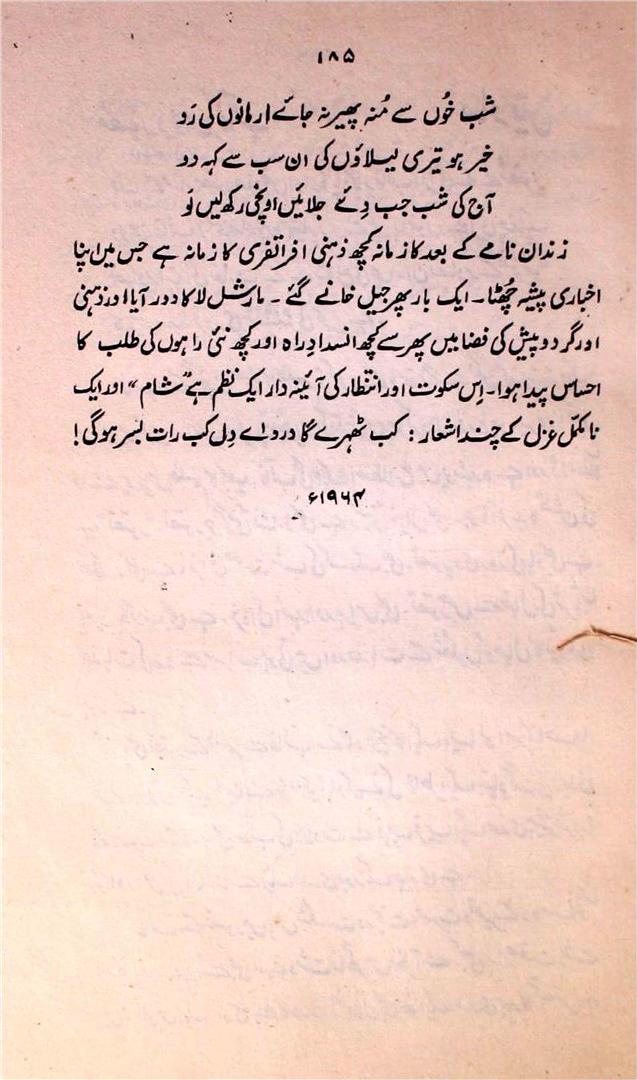 ۱۸۵
شب خُوں سے مُنہ پھیر نہ جائے ارمانوں کی رَو
خیر ہو تیری لیلاؤں کی ان سب سے کہہ دو
آج کی شب جب دِئے جلائیں اونچی رکھ لیں لَو
زندان نامے کے بعد کا زمانہ کچھ ذہنی افراتفری کا زمانہ ہے جس میں اپنا
اخباری پیشہ چُھٹا۔ ایک بار پھر جیل خانے گئے۔ مارشل لا کا دور آیا اور ذہنی
اور گردوپیش کی فضا میں پھر سے کچھ انسدادِ راہ اور کچھ نئی راہوں کی طلب کا
احساس پیدا ہوا۔ اِس سکوت اور انتظار کی آئینہ دار ایک نظم ہے ”شام“ اور ایک
نامکمّل غزل کے چند اشعار: کب ٹھہرے گا درد اے دِل کب رات بسر ہوگی!
۱۹۶۴ء